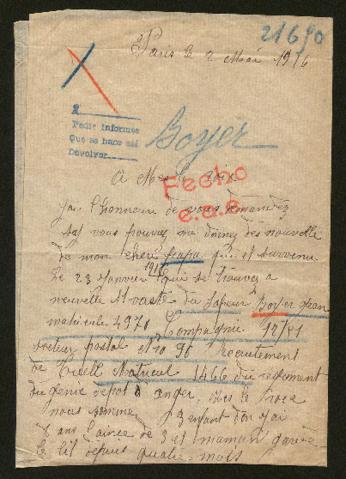 21690
Paris le 2 Mai 1916
2
Pedir informes
Que se hace así
Devolver
Boyer
A
Fecho
e.a.e
J'ai l'honneur de vous demandez
si vous pouvez me donnez des nouvelle
de mon cher papa
Le 23 Janvier 1916 qui se trouvez a
neuville St vaast du Sapeur Boyer Jean
matricule 4970 Compagnie 12/51
secteur postal No 96 recrutement
de Tulle Matricul 1466 du regiment
du genie depot d'anger,
nous somme 3 enfant don jai
ans l'ainee de 3 et maman garde
le lit depuis quatre mois